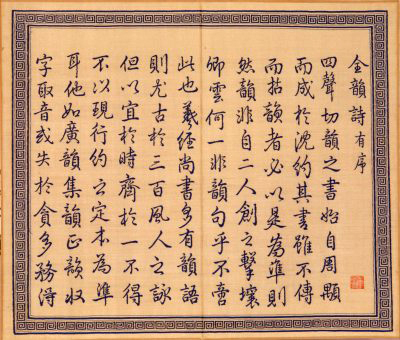 全韻詩有序
四聲切韻之書始自周顒
而成於沈約其書雖不傳
而拈韻者必以是為準則
然韻非自二人創之擊壤
卿雲何一非韻句乎不啻
此也羲經尚書多有韻語
則尤古於三百風人之詠
但以宜於時齋於一不得
不以現行約之定本為準
耳他如廣韻集韻正韻收
字取音或失於貪多務得